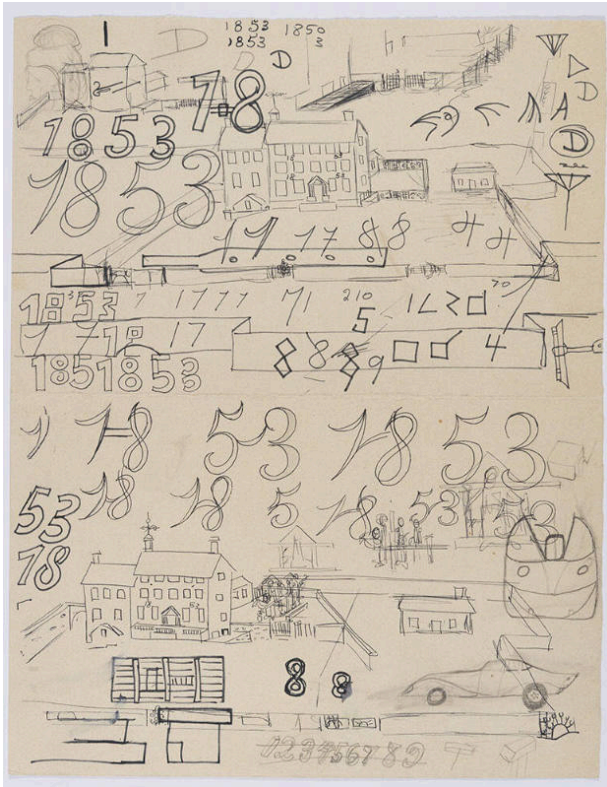 1853 1850
1 D 1853 3
D
D
78
1853 A
D
1853
17 17 8 8 4 4
70
1853 7 1777 71 210
5
7 10 17
8 8 8 9 4
1851853
1 18 53 18 53
18 18 5 18 53 53
53
18
8 8
123456789